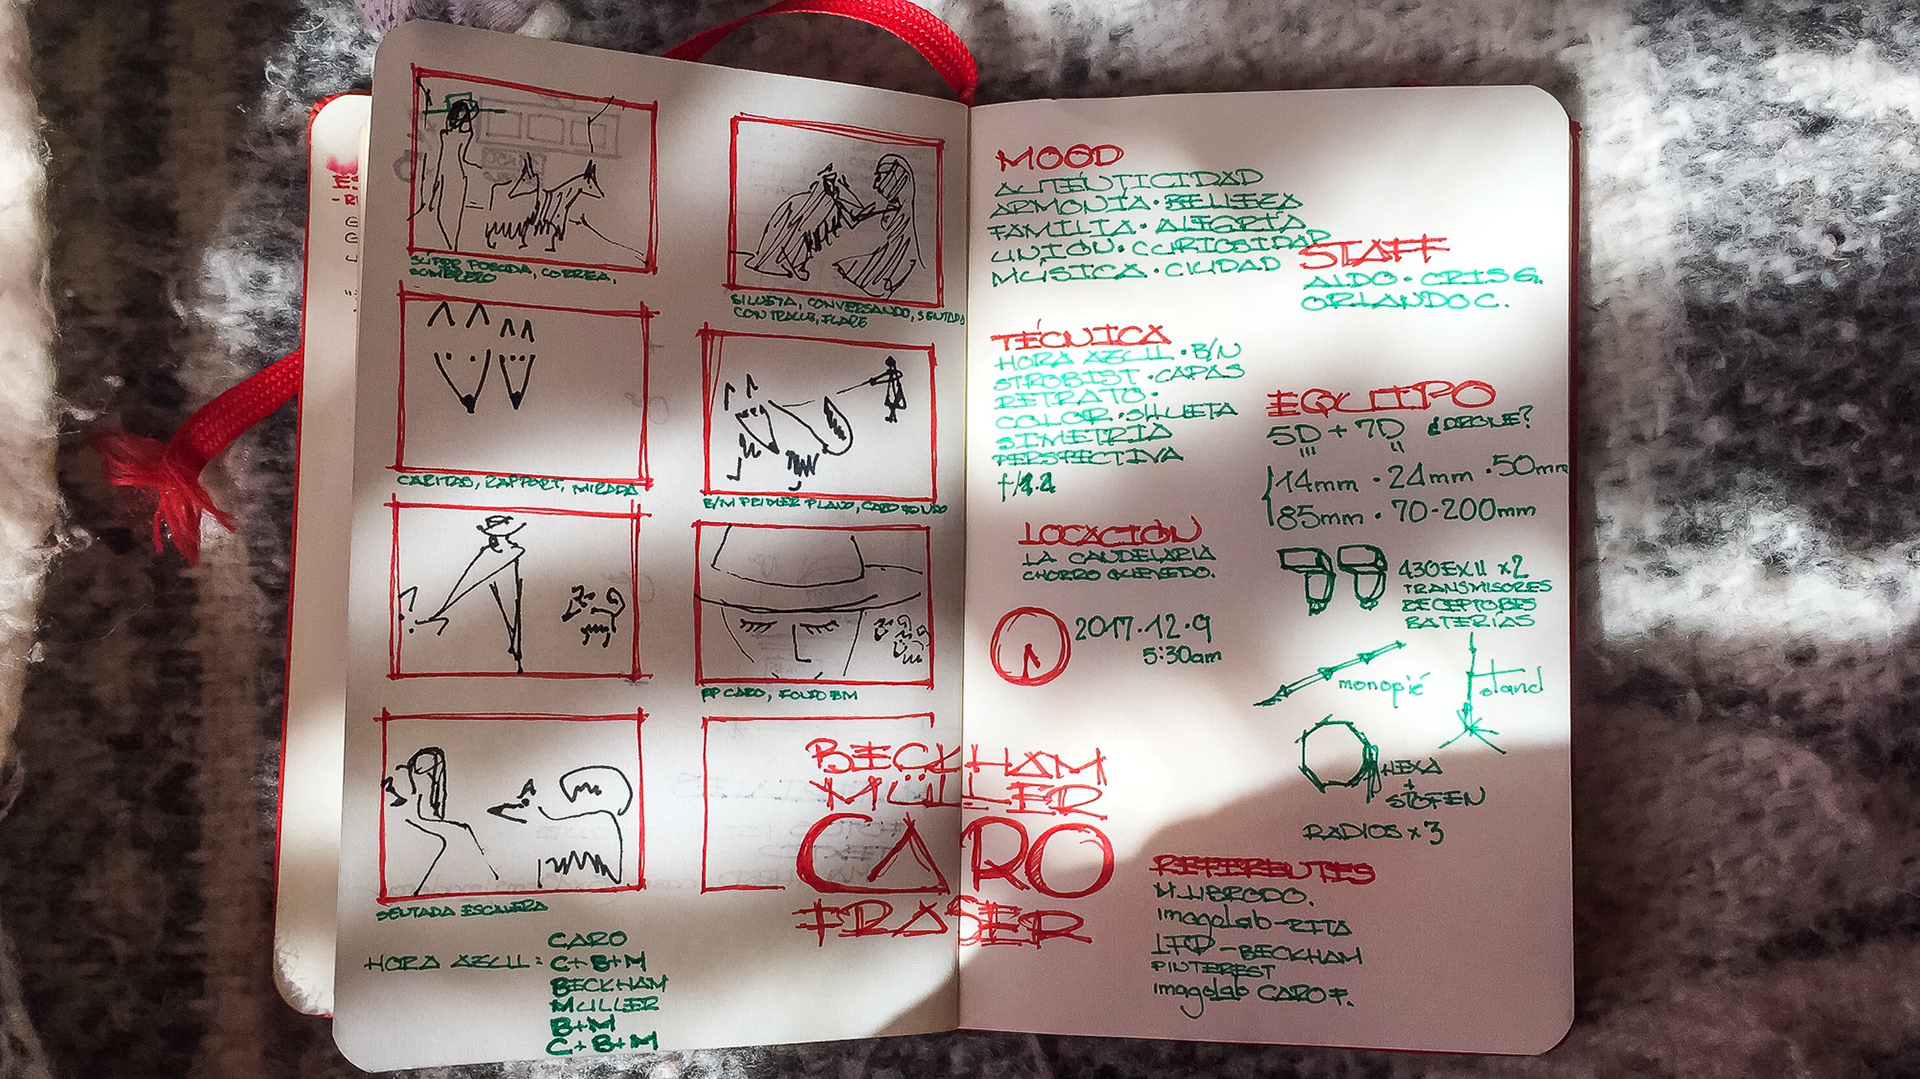 SUPER POSUDA, CORREA,
SOMBRERO
SILUETA, CONVERSANDO, SENTADA
CONTRALUZ, FLARE
CARITAS, RAPPORT, MIRADA
B/N PRIMER PLANO, CARO FONDO
PP CARO, FONDO BM
SENTADA ESCALERA
HORA AZUL: CARO
C+B+M
BECKHAM
MULLER
B+M
C+B+M
BECKHAM
MÜLLER
CARO
FRASER
MOOD
AUTENTICIDAD
ARMONÍA · BELLEZA
FAMILIA · ALEGRÍA
UNIÓN · CURIOSIDAD
MÚSICA · CIUDAD
STAFF
ALDO · CRIS G.
ORLANDO C.
TÉCNICA
HORA AZUL · B/N
STROBIST · CAPAS
RETRATO ·
COLOR · SILUETA
SIMETRIA
PERSPECTIVA
EQUIPO
5D + 7D ¿DRONE?
14mm · 24mm · 50mm
85mm · 70-200mm
430EX II x2
TRANSMISORES
RECEPTORES
BATERÍAS
monopié
stand
HEXA
+
STOFEN
RADIOS x 3
LOCACIÓN
LA CANDELARIA
CHORRO QUEVEDO.
2017.12.9
5:30am
REFERENTES
M. LIBRODO.
imagolab - RITA
LFD - BECKHAM
PINTEREST
imagolab CARO F.